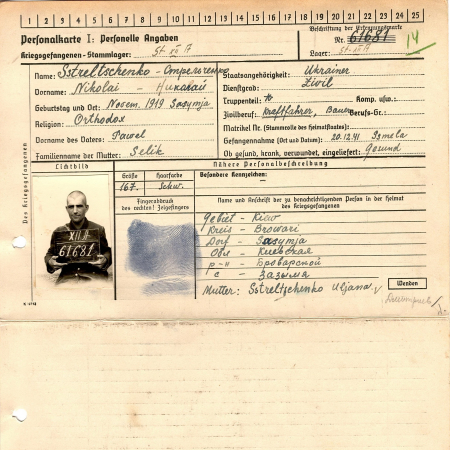 1 2 3 4 5 6 7 8 9 10 11 12 13 14 15 16 17 18 19 20 21 22 23 24 25
Personalkarte I: Personelle Angaben
Beschriftung der Erkennungsmarke
Nr. 61681
14
Kriegsgefangenen-Stammlager: St. XII A
Lager: St. XII A
Des Kriegsgefangenen
Name: Sstreltschenko -
Staatsangehörigkeit: Ukrainer
Vorname: Nikolai - Николай
Dienstgrad: Zivil
Geburtstag und Ort: Novem. 1919 Sasymja
Truppenteil: Komp. usw.:
Religion: Orthodox
Zivilberuf: Kraftfahrer, Bauer Berufs-Gr.:
Vorname des Vaters: Pawel
Matrikel Nr. (Stammrolle des Heimatstaates):
Gefangennahme (Ort und Datum): 20.12.41 Ismela
Familienname der Mutter: Selik
Ob gesund, krank, verwundet, eingeliefert: Gesund
Lichtbild
Nähere Personalbeschreibung
Größe
Haarfarbe
Besondere Kennzeichen:
167.
Schw.
Fingerabdruck
des rechten! Zeigefingers
Name und Anschrift der zu benachrichtigenden Person in der Heimat
des Kriegsgefangenen
Gebiet - Kiew
Kreis - Browari
Dorf - Sasymja
Обл - Киевская
р-н - Броварской
с - Зазымя
Mutter: Sstreltschenko Uljana
XII A
61681
Wenden